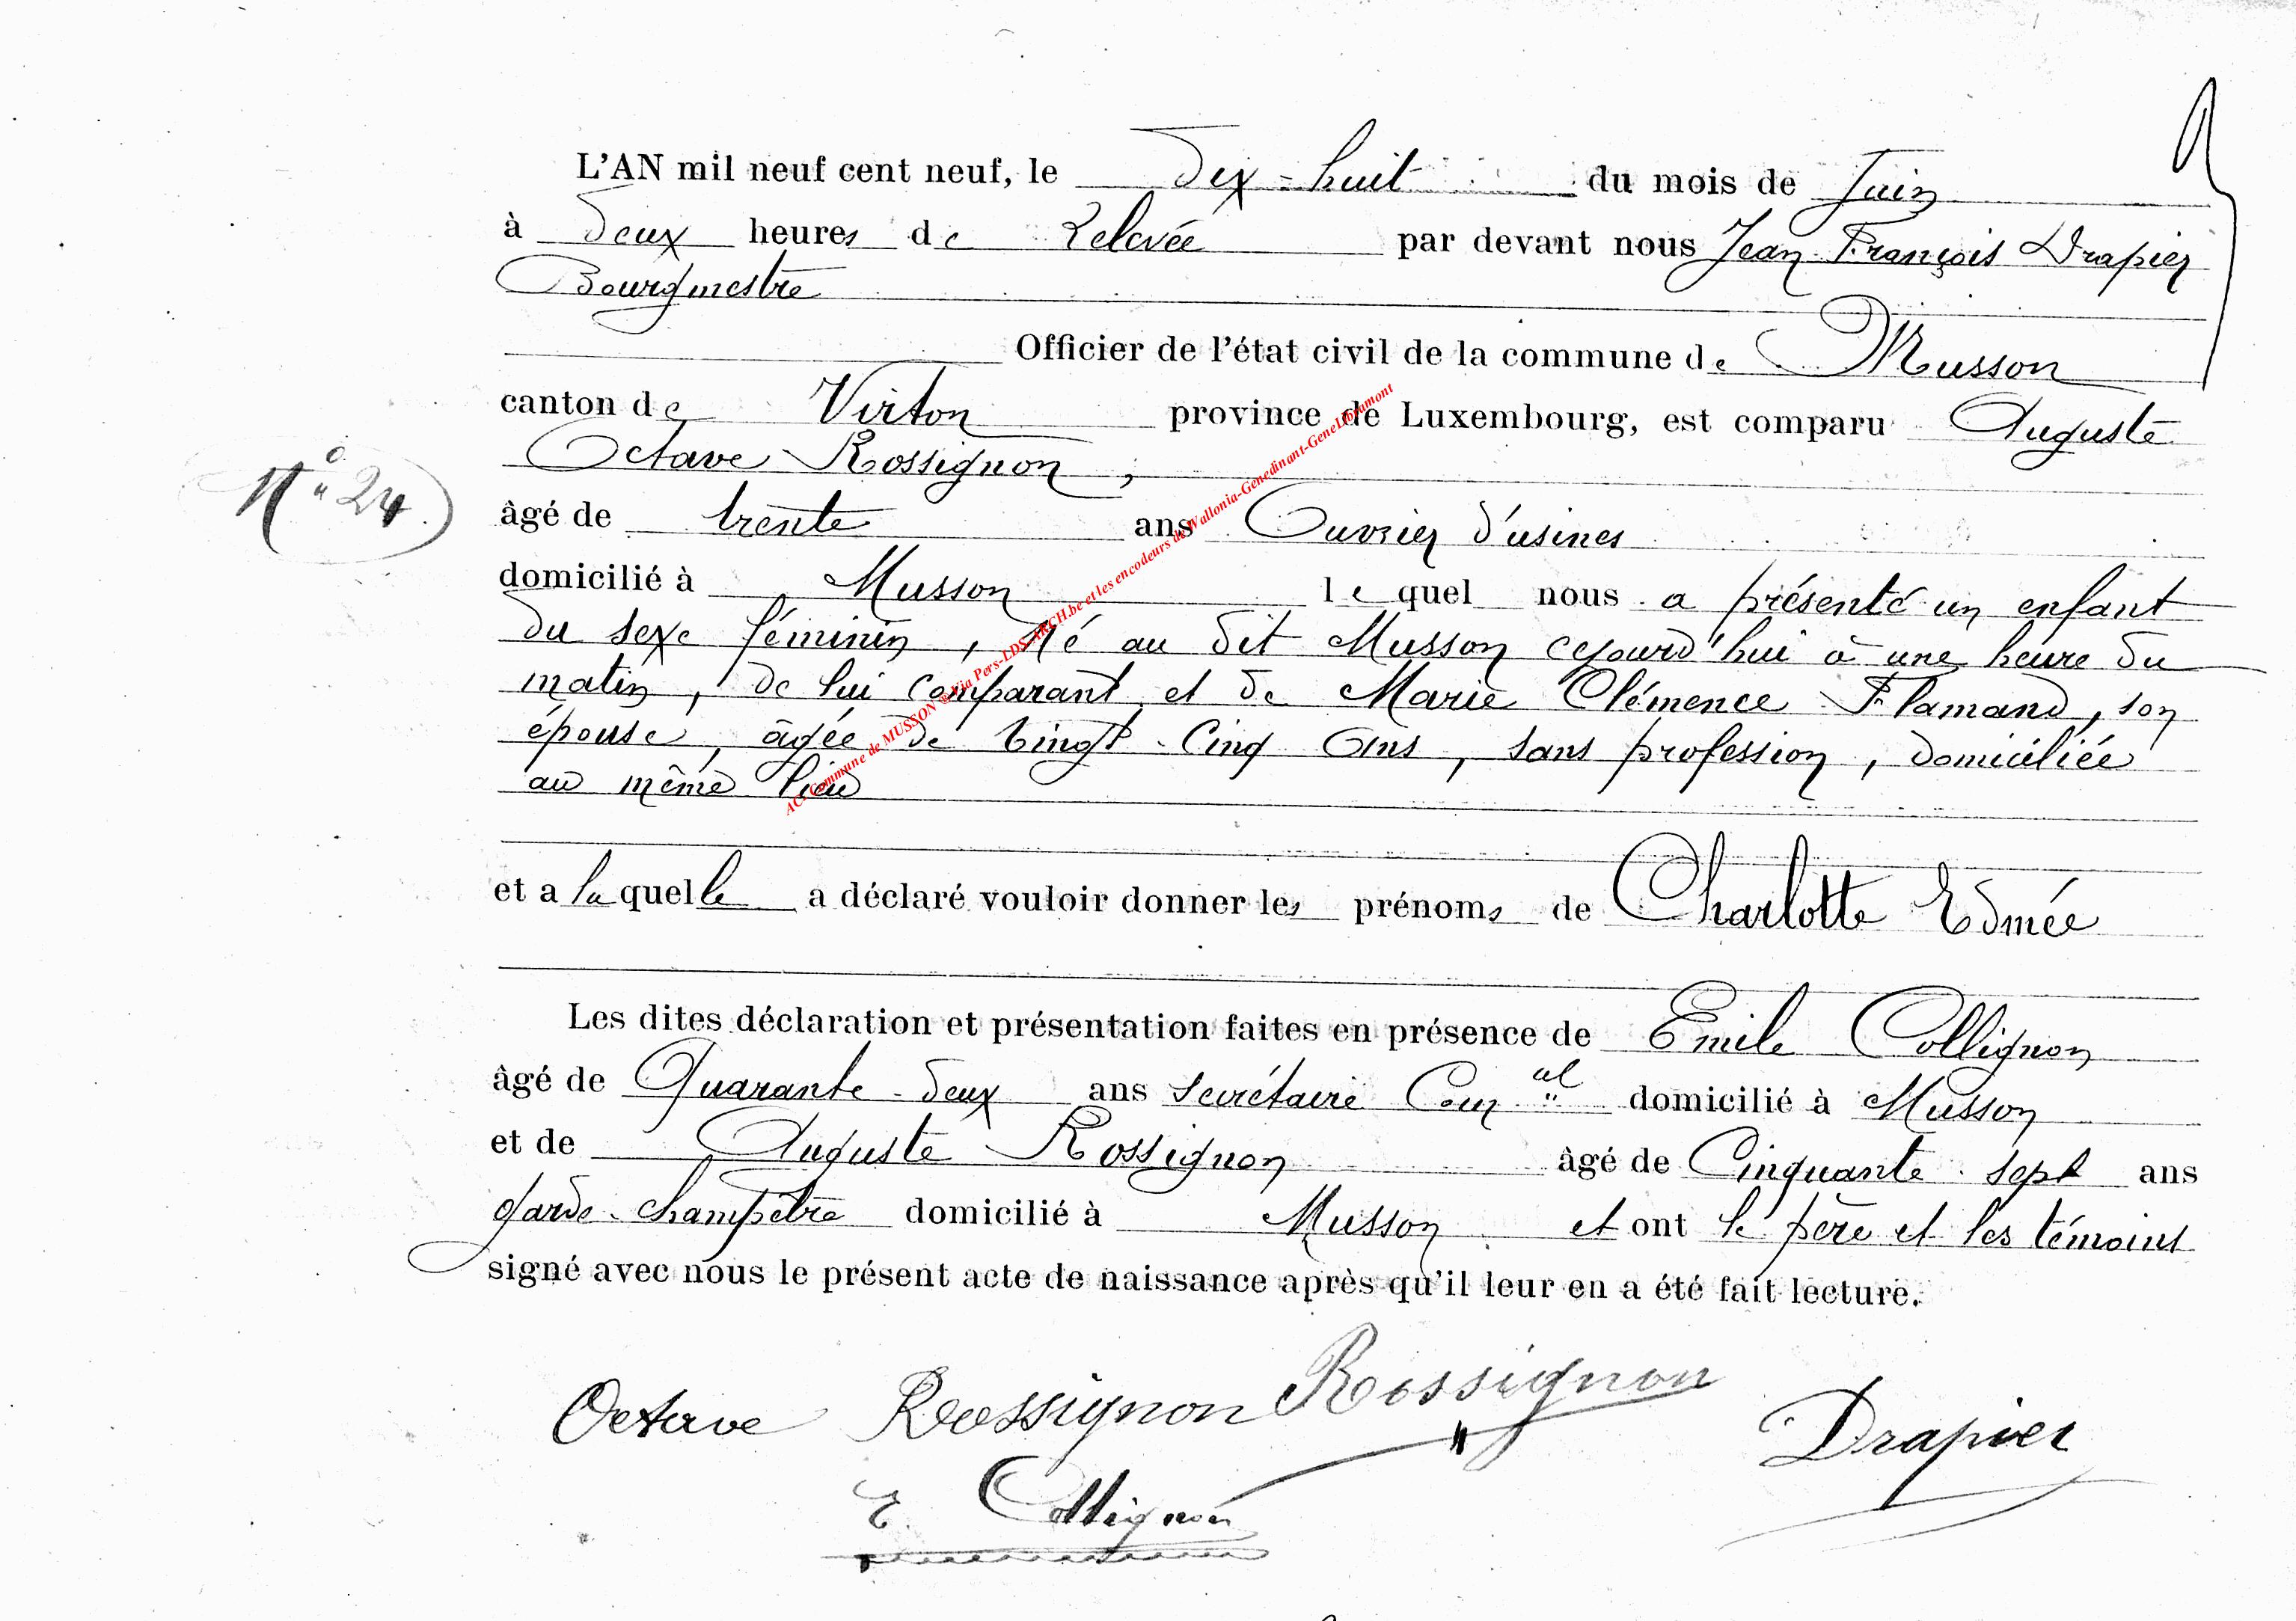 L'AN mil neuf cent neuf, le dix-huit du mois de Juin
à deux heures de Relevée par devant nous Jean François Drapier
Bourgmestre
Officier de l'état civil de la commune de Musson
canton de Virton province de Luxembourg, est comparu Auguste
Octave Rossignon,
N° 24.
âgé de trente ans Ouvrier d'usines
domicilié à Musson le quel nous a présenté un enfant
du sexe féminin, Né au dit Musson cejourd'hui à une heure du
matin, de lui comparant et de Marie Clémence Flamand, son
épouse, âgée de Vingt-Cinq Ans, sans profession, domiciliée
au même lieu
AC: Commune de MUSSON @ Via Pers-LDS-ARCH.be et les encodeurs de Wallonia-Genedinant-GeneLibramont
et a la quelle a déclaré vouloir donner les prénoms de Charlotte Edmée
Les dites déclaration et présentation faites en présence de Emile Collignon
âgé de Quarante-deux ans secrétaire Com al domicilié à Musson
et de Auguste Rossignon âgé de Cinquante-sept ans
garde-champêtre domicilié à Musson et ont le père et les témoins
signé avec nous le présent acte de naissance après qu'il leur en a été fait lecture.
Octave Rossignon Rossignon Drapier
E. Collignon